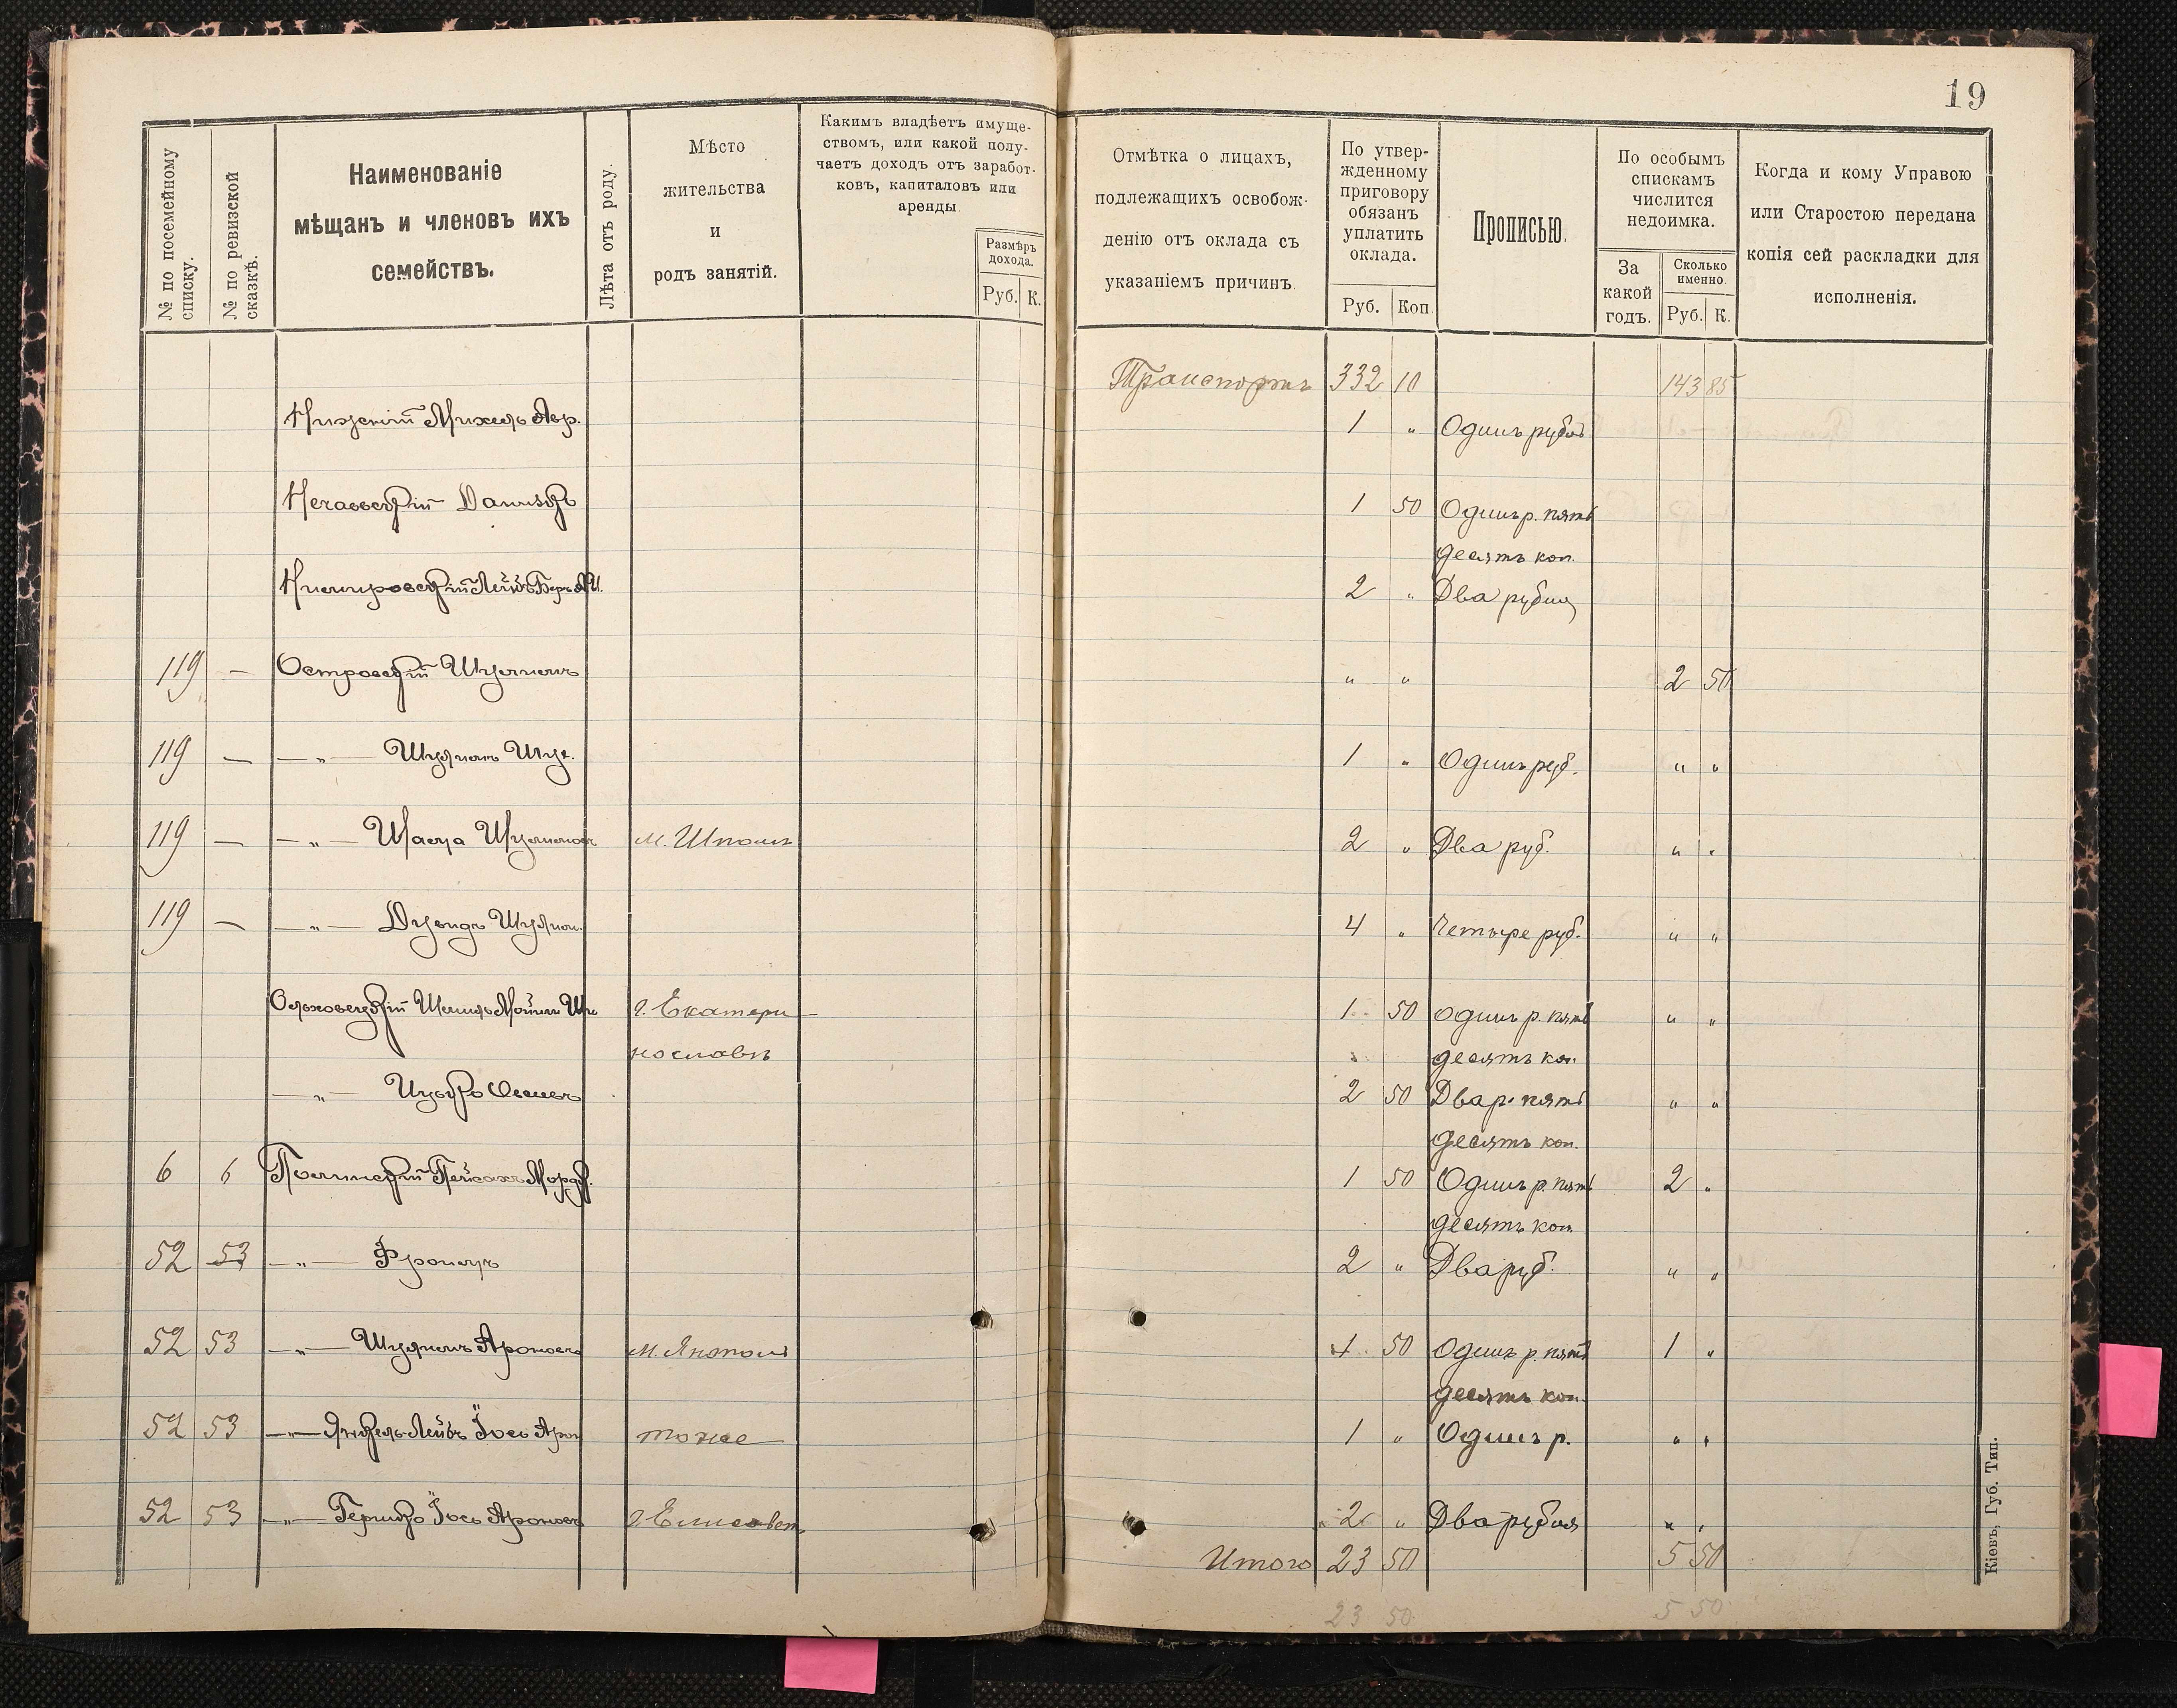 19
№ по посемейному списку.
№ по ревизской сказкѣ.
Наименованіе
мѣщанъ и членовъ ихъ
семействъ.
Лѣта отъ роду.
Мѣсто
жительства
и
родъ занятій.
Какимъ владѣетъ имуще-
ствомъ, или какой полу-
чаетъ доходъ отъ заработ-
ковъ, капиталовъ или
аренды
Размѣръ
дохода.
Руб. К.
Отмѣтка о лицахъ,
подлежащихъ освобож-
денію отъ оклада съ
указаніемъ причинъ.
По утвер-
жденному
приговору
обязанъ
уплатить
оклада.
Руб. Коп.
Прописью.
По особымъ
спискамъ
числится
недоимка.
За
какой
годъ.
Сколько
именно.
Руб. К.
Когда и кому Управою
или Старостою передана
копія сей раскладки для
исполненія.
Транспортъ 332 10 143 85
Михель Авр. 1 " Одинъ рубль
Нечаевскій 1 50 Одинъ р. пять
десятъ коп.
Немировскій Лейбъ Беръ 2 " Два рубля
119 — Островскій " " 2 50
119 — —"— 1 " Одинъ руб. " "
119 — —"— м. Шпола 2 " Два руб. " "
119 — —"— 4 " Четыре руб. " "
Ольховецкій г. Екатери- 1 50 Одинъ р. пять " "
нославъ десятъ коп.
—"— 2 50 Два р. пять " "
десятъ коп.
6 6 Пейсахъ Мордк. 1 50 Одинъ р. пять 2 "
десятъ коп.
52 53 —"— 2 " Два руб. " "
52 53 —"— Ароновъ 1 50 Одинъ р. пять 1 "
десятъ коп.
52 53 —"— Янкель-Лейбъ Іось Арон тоже 1 " Одинъ р. " "
52 53 —"— Гершко Іось Ароновъ г. Елисавет 2 " Два рубля " "
Итого 23 50 5 50
23 50 5 50
Кіевъ, Губ. Тип.